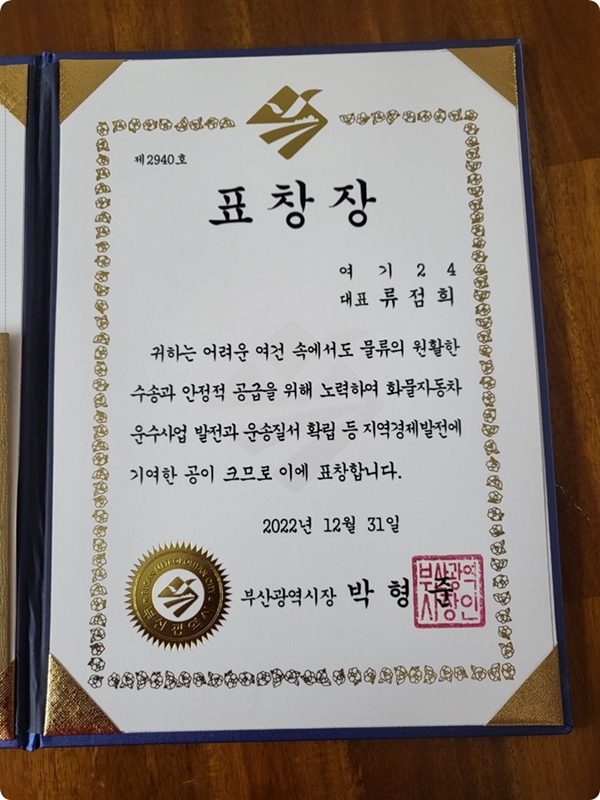 제2940호
표창장
여기24
대표 류점희
귀하는 어려운 여건 속에서도 물류의 원활한
수송과 안정적 공급을 위해 노력하여 화물자동차
운수사업 발전과 운송질서 확립 등 지역경제발전에
기여한 공이 크므로 이에 표창합니다.
2022년 12월 31일
부산광역시장 박형준
부산광역
시장인